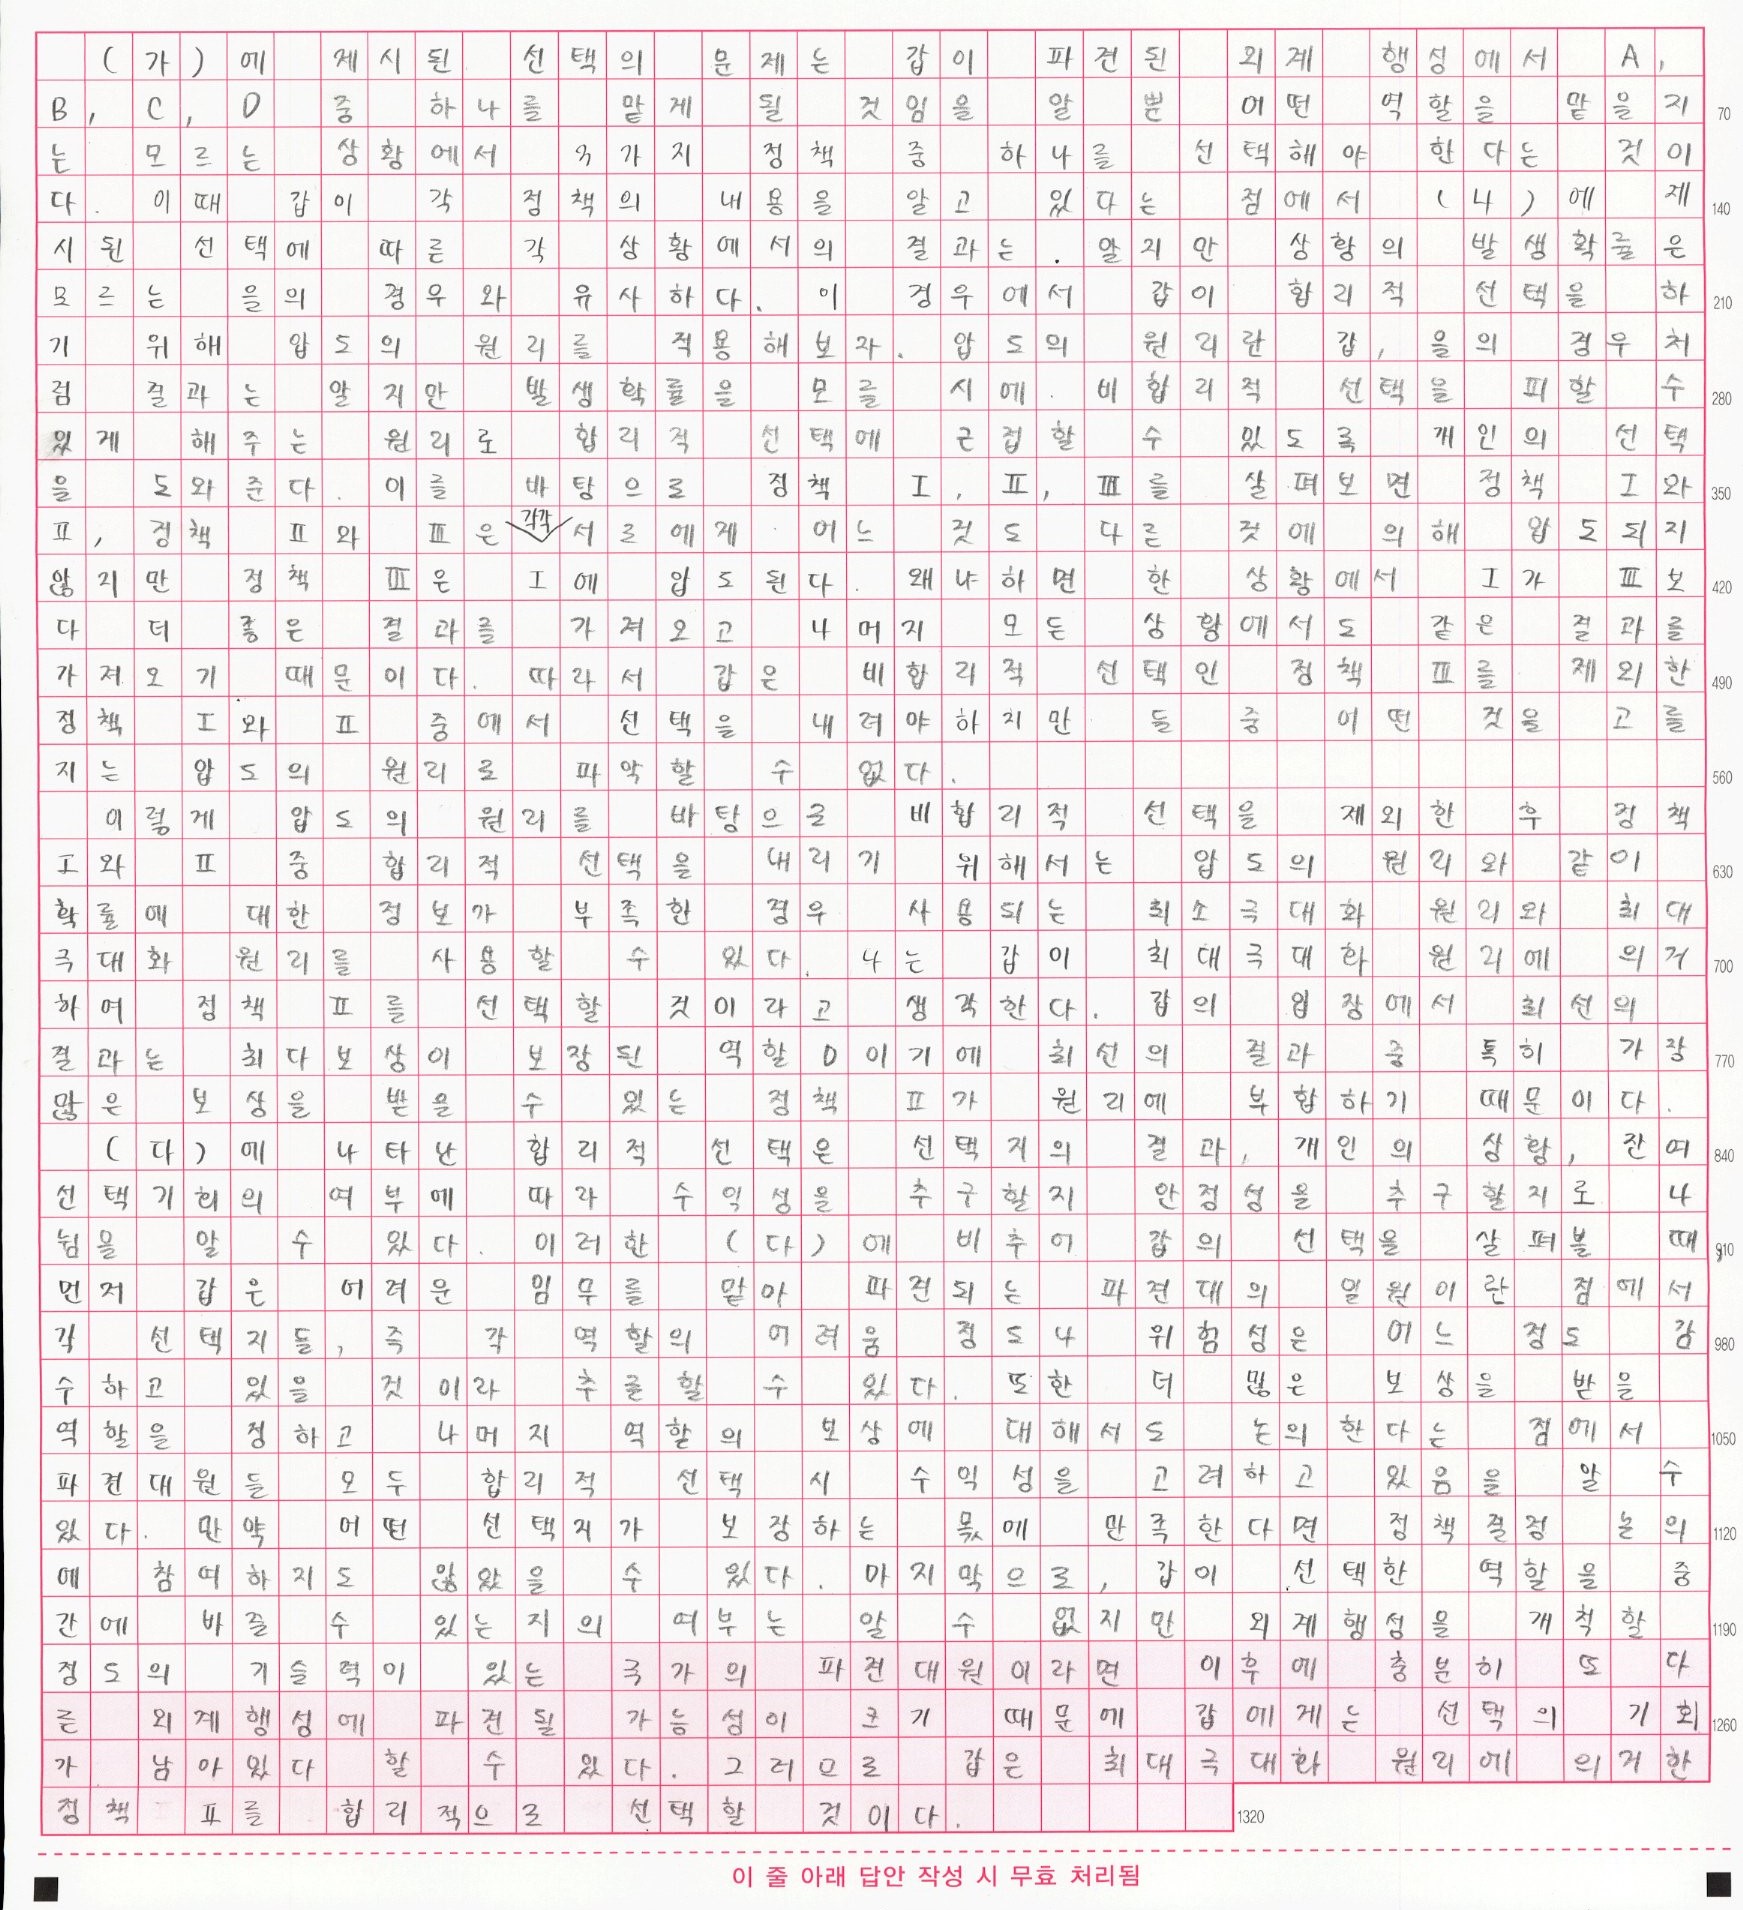 (가)에 제시된 선택의 문제는 갑이 파견된 외계 행성에서 A,
B, C, D 중 하나를 맡게 될 것임을 알 뿐 어떤 역할을 맡을지 70
는 모르는 상황에서 3가지 정책 중 하나를 선택해야 한다는 것이
다. 이때 갑이 각 정책의 내용을 알고 있다는 점에서 (나)에 제 140
시된 선택에 따른 각 상황에서의 결과는 알지만 상황의 발생확률은
모르는 을의 경우와 유사하다. 이 경우에서 갑이 합리적 선택을 하 210
기 위해 압도의 원리를 적용해보자. 압도의 원리란 갑, 을의 경우처
럼 결과는 알지만 발생확률을 모를 시에 비합리적 선택을 피할 수 280
있게 해주는 원리로 합리적 선택에 근접할 수 있도록 개인의 선택
을 도와준다. 이를 바탕으로 정책 I, II, III를 살펴보면 정책 I와 350
II, 정책 II와 III은 각각 서로에게 어느 것도 다른 것에 의해 압도되지
않지만 정책 III은 I에 압도된다. 왜냐하면 한 상황에서 I가 III보 420
다 더 좋은 결과를 가져오고 나머지 모든 상황에서도 같은 결과를
가져오기 때문이다. 따라서 갑은 비합리적 선택인 정책 III를 제외한 490
정책 I와 II 중에서 선택을 내려야하지만 둘 중 어떤 것을 고를
지는 압도의 원리로 파악할 수 없다. 560
이렇게 압도의 원리를 바탕으로 비합리적 선택을 제외한 후 정책
I와 II 중 합리적 선택을 내리기 위해서는 압도의 원리와 같이 630
확률에 대한 정보가 부족한 경우 사용되는 최소극대화 원리와 최대
극대화 원리를 사용할 수 있다. 나는 갑이 최대극대화 원리에 의거 700
하여 정책 II를 선택할 것이라고 생각한다. 갑의 입장에서 최선의
결과는 최다보상이 보장된 역할D이기에 최선의 결과 중 특히 가장 770
많은 보상을 받을 수 있는 정책 II가 원리에 부합하기 때문이다.
(다)에 나타난 합리적 선택은 선택지의 결과, 개인의 상황, 잔여 840
선택기회의 여부에 따라 수익성을 추구할지 안정성을 추구할지로 나
뉨을 알 수 있다. 이러한 (다)에 비추어 갑의 선택을 살펴볼 때, 910
먼저 갑은 어려운 임무를 맡아 파견되는 파견대의 일원이란 점에서
각 선택지들, 즉 각 역할의 어려움 정도나 위험성은 어느 정도 감 980
수하고 있을 것이라 추론할 수 있다. 또한 더 많은 보상을 받을
역할을 정하고 나머지 역할의 보상에 대해서도 논의한다는 점에서 1050
파견대원들 모두 합리적 선택 시 수익성을 고려하고 있음을 알 수
있다. 만약 어떤 선택지가 보장하는 몫에 만족한다면 정책결정 논의 1120
에 참여하지도 않았을 수 있다. 마지막으로, 갑이 선택한 역할을 중
간에 바꿀 수 있는지의 여부는 알 수 없지만 외계행성을 개척할 1190
정도의 기술력이 있는 국가의 파견대원이라면 이후에 충분히 또 다
른 외계행성에 파견될 가능성이 크기 때문에 갑에게는 선택의 기회 1260
가 남아있다 할 수 있다. 그러므로 갑은 최대극대화 원리에 의거한
정책 II를 합리적으로 선택할 것이다. 1320
이 줄 아래 답안 작성 시 무효 처리됨